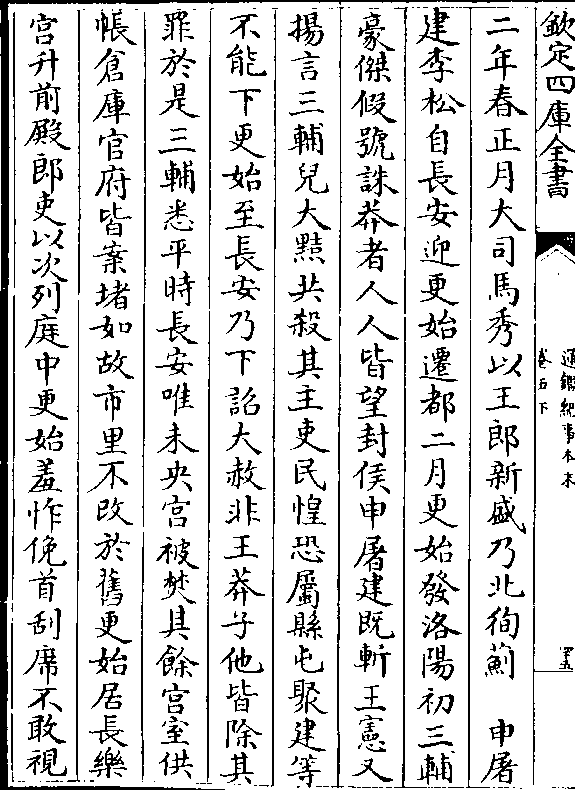 欽定四庫全書
通鑑紀事本末
卷五下
四五
二年春正月大司馬秀以王郎新盛乃北徇薊　申屠
建李松自長安迎更始遷都二月更始發洛陽初三輔
豪傑假號誅莽者人人皆望封侯申屠建既斬王憲又
揚言三輔兒大黠共殺其主吏民惶恐屬縣屯聚建等
不能下更始至長安乃下詔大赦非王莽子他皆除其
罪於是三輔悉平時長安唯未央宮被焚其餘宮室供
帳倉庫官府皆案堵如故市里不改於舊更始居長樂
宮升前殿郎吏以次列庭中更始羞怍俛首刮席不敢視